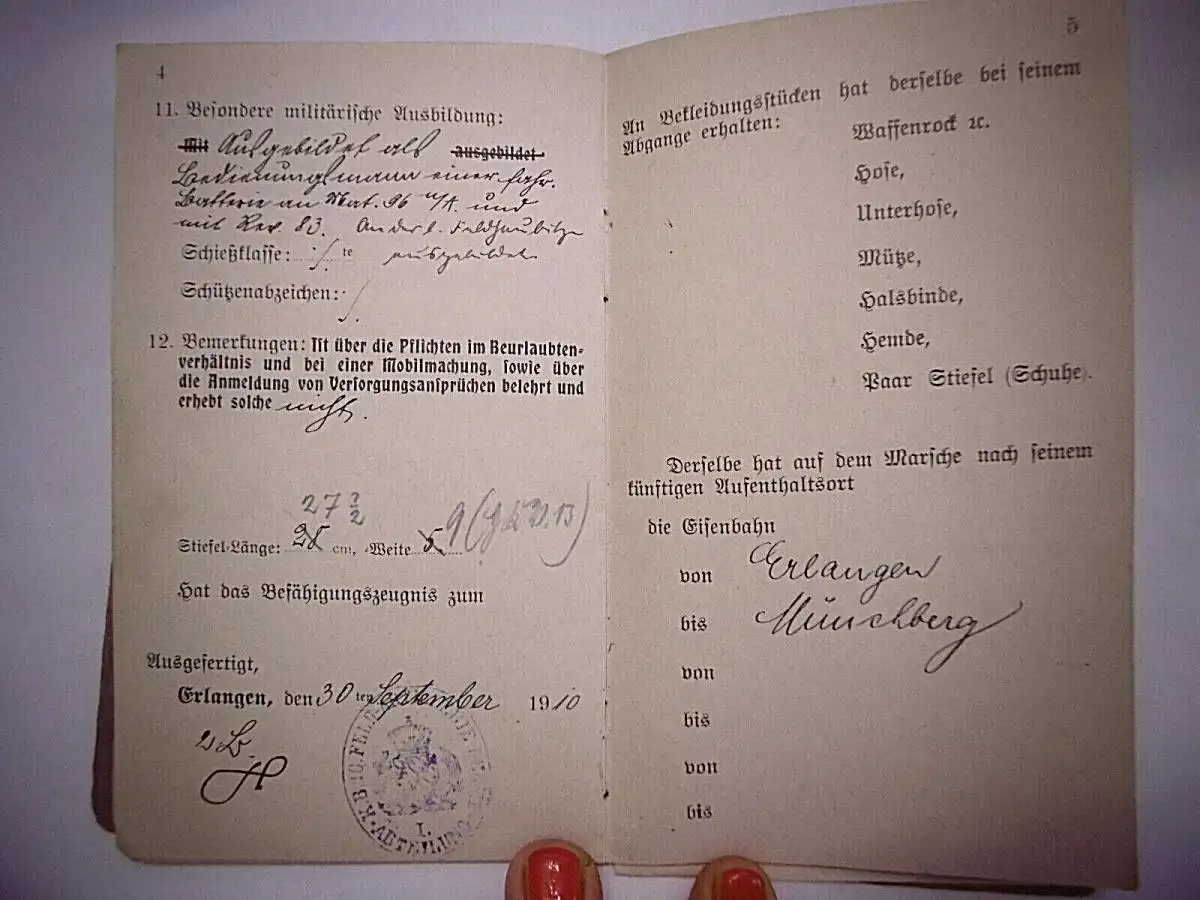 4
11. Besondere militärische Ausbildung:
Mit Ausgebildet als ausgebildet
Bedienungsmann einer fahr.
Batterie an Mat. 96 n/A. und
mit Rev. 83. An der l. Feldhaubitze
Schießklasse: te ausgebildet
Schützenabzeichen:
12. Bemerkungen: Ist über die Pflichten im Beurlaubten-
verhältnis und bei einer Mobilmachung, sowie über
die Anmeldung von Versorgungsansprüchen belehrt und
erhebt solche nicht.
27 ½ 9
Stiefel-Länge: 28 cm, -Weite 5
Hat das Befähigungszeugnis zum
Ausgefertigt,
Erlangen, den 30 ten September 1910
K.B. 10. FELD
I. ABTEILUNG
5
An Bekleidungsstücken hat derselbe bei seinem
Abgange erhalten:
Waffenrock ꝛc.
Hose,
Unterhose,
Mütze,
Halsbinde,
Hemde,
Paar Stiefel (Schuhe).
Derselbe hat auf dem Marsche nach seinem
künftigen Aufenthaltsort
die Eisenbahn
von Erlangen
bis Münchberg
von
bis
von
bis